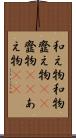 和え物和物
韲え物
韲物 あ
え物